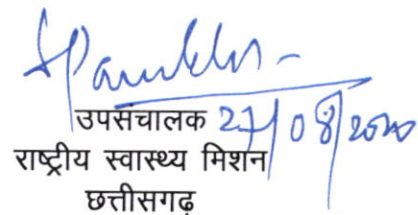 उपसंचालक 27/08/2020
राष्ट्रीय स्वास्थ्य मिशन
छत्तीसगढ़